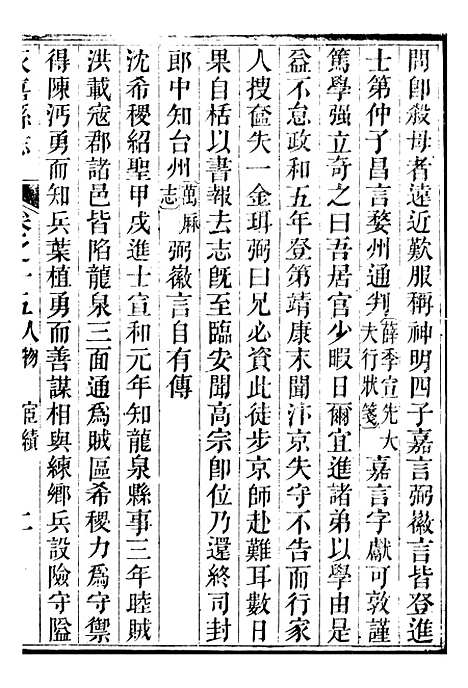 問卽殺母者遠近歎服稱神明四子嘉言弼徽言皆登進
士第仲子昌言婺州通判薛季宣先大夫行狀箋嘉言字獻可敦謹
篤學强立奇之曰吾居官少暇日爾宜進諸弟以學由是
益不怠政和五年登第靖康末聞汴京失守不告而行家
人搜奩失一金珥弼曰兄必資此徒步京師赴難耳數日
果自栝以書報去志旣至臨安聞高宗卽位乃還終司封
郎中知台州萬厤志弼徽言自有傳
沈希稷紹聖甲戌進士宣和元年知龍泉縣事三年睦賊
洪載寇郡諸邑皆陷龍泉三面通爲賊區希稷力爲守禦
得陳沔勇而知兵葉植勇而善謀相與練鄕兵設險守隘
永嘉縣志 卷之十五 人物 宦績 二